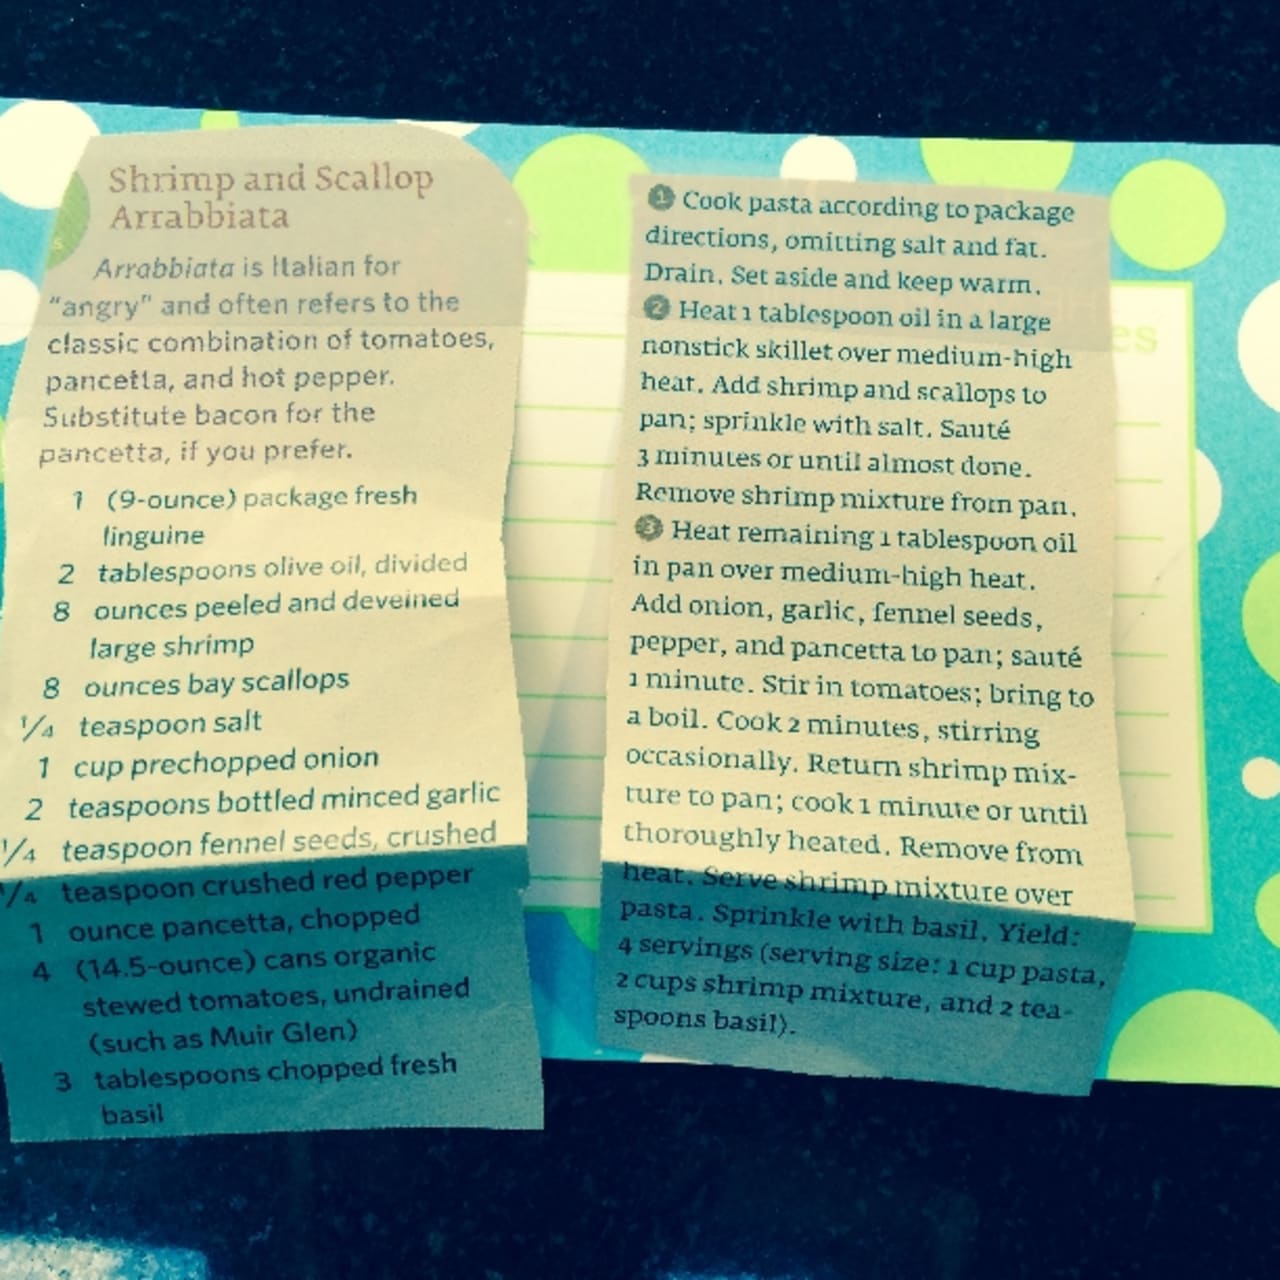 Shrimp and Scallop
Arrabbiata
Arrabbiata is Italian for
"angry" and often refers to the
classic combination of tomatoes,
pancetta, and hot pepper.
Substitute bacon for the
pancetta, if you prefer.
1 (9-ounce) package fresh
linguine
2 tablespoons olive oil, divided
8 ounces peeled and deveined
large shrimp
8 ounces bay scallops
1/4 teaspoon salt
1 cup prechopped onion
2 teaspoons bottled minced garlic
1/4 teaspoon fennel seeds, crushed
1/4 teaspoon crushed red pepper
1 ounce pancetta, chopped
4 (14.5-ounce) cans organic
stewed tomatoes, undrained
(such as Muir Glen)
3 tablespoons chopped fresh
basil
1 Cook pasta according to package
directions, omitting salt and fat.
Drain. Set aside and keep warm.
2 Heat 1 tablespoon oil in a large
nonstick skillet over medium-high
heat. Add shrimp and scallops to
pan; sprinkle with salt. Sauté
3 minutes or until almost done.
Remove shrimp mixture from pan.
3 Heat remaining 1 tablespoon oil
in pan over medium-high heat.
Add onion, garlic, fennel seeds,
pepper, and pancetta to pan; sauté
1 minute. Stir in tomatoes; bring to
a boil. Cook 2 minutes, stirring
occasionally. Return shrimp mix-
ture to pan; cook 1 minute or until
thoroughly heated. Remove from
heat. Serve shrimp mixture over
pasta. Sprinkle with basil. Yield:
4 servings (serving size: 1 cup pasta,
2 cups shrimp mixture, and 2 tea-
spoons basil).